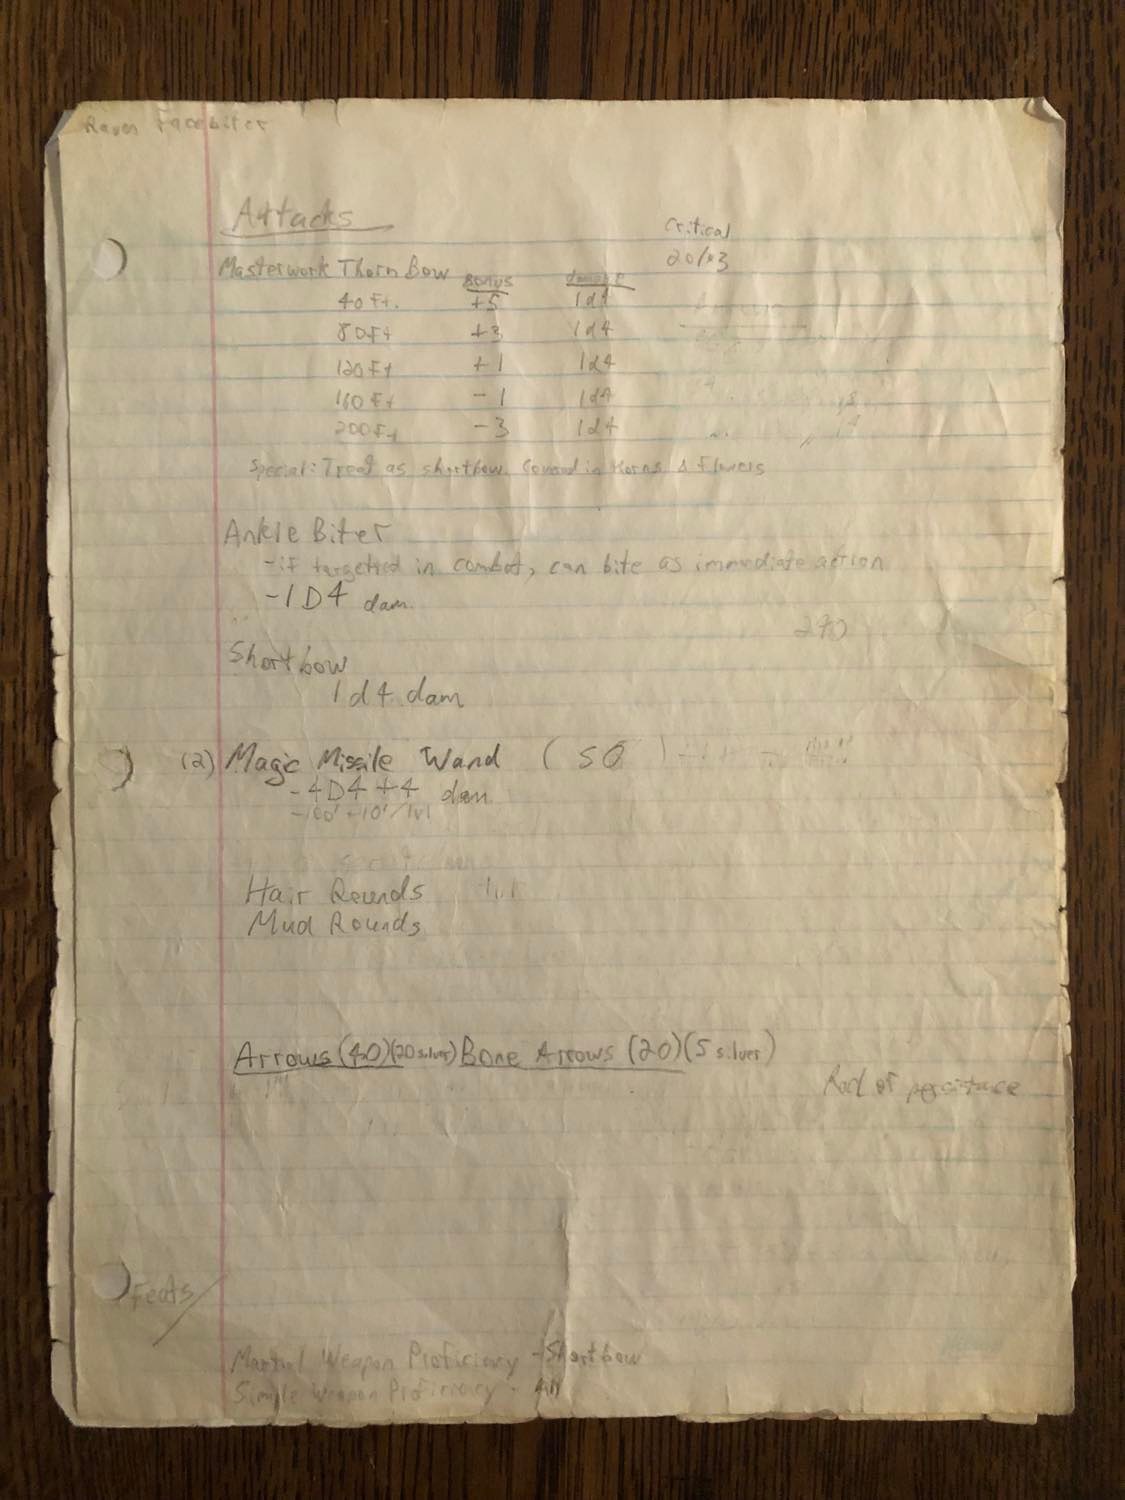 Raven Facebiter
Attacks
Critical
20/x3
Masterwork Thorn Bow Bonus damage
40 Ft. +5 1d4
80 Ft +3 1d4
120 Ft +1 1d4
160 Ft -1 1d4
200 Ft -3 1d4
Special: Treat as shortbow. Covered in & Flowers
Ankle Biter
-if targetted in combat, can bite as immediate action
-1D4 dam.
290
Shortbow
1d4 dam
(2) Magic Missile Wand (50)
-4D4+4 dam
-100' +10'/lvl
Hair Rounds
Mud Rounds
Arrows (40)(20 silver) Bone Arrows (20)(5 silver)
Rod of
Feats
Martial Weapon Proficiency - Shortbow
Simple Weapon Proficiency - All